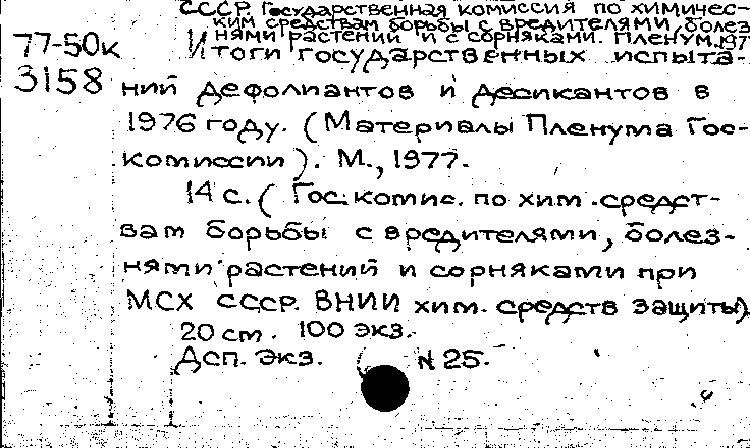 СССР. Государственная комиссия по химичес-
ким средствам борьбы с вредителями, болез
нями растений и с сорняками. Пленум. 197
77-50к
Итоги государственных испыта-
3158
ний дефолиантов и десикантов в
1976 году. (Материалы Пленума Гос-
комиссии). М., 1977.
14 с. (Гос. комис. по хим. средст-
вам борьбы с вредителями, болез-
нями растений и сорняками при
МСХ СССР. ВНИИ хим. средств защиты)
20 см. 100 экз.
Дсп. Экз. N 25.